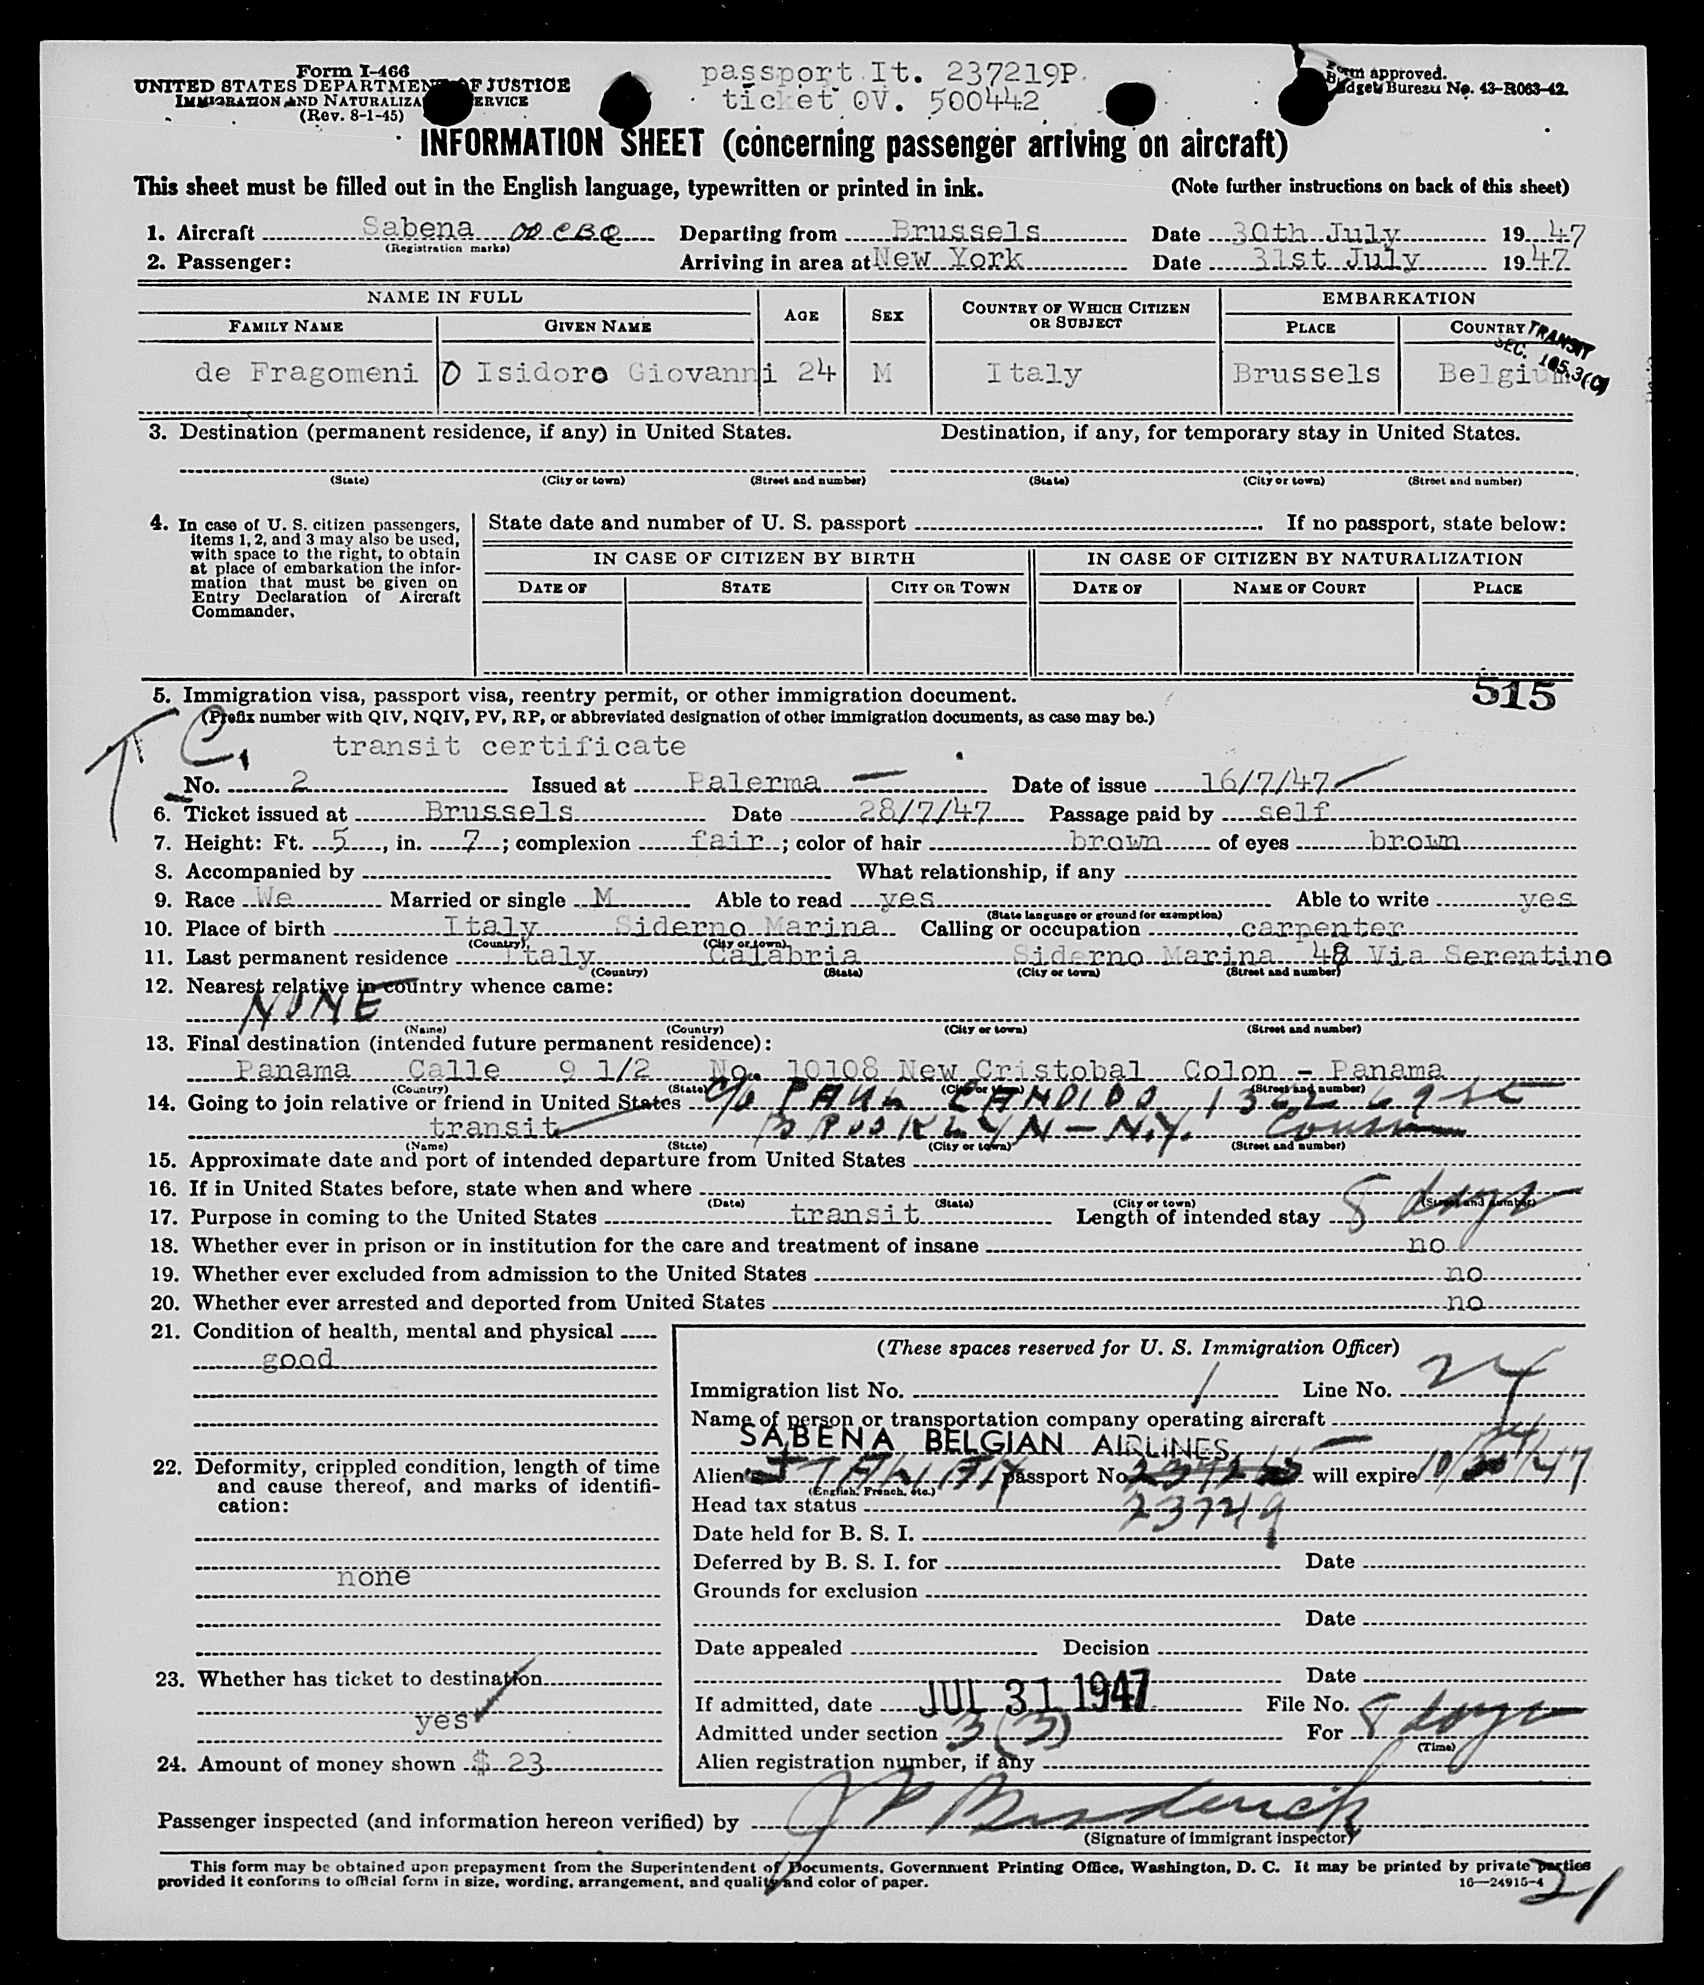 Form I-466
UNITED STATES DEPARTMENT OF JUSTICE
IMMIGRATION AND NATURALIZATION SERVICE
(Rev. 8-1-45)
passport It. 237219P.
ticket OV. 500442
Form approved.
Budget Bureau No. 43-R063-42.
INFORMATION SHEET (concerning passenger arriving on aircraft)
This sheet must be filled out in the English language, typewritten or printed in ink. (Note further instructions on back of this sheet)
1. Aircraft Sabena OO CBQ Departing from Brussels Date 30th July 1947
(Registration marks)
2. Passenger: Arriving in area at New York Date 31st July 1947
NAME IN FULL AGE SEX COUNTRY OF WHICH CITIZEN OR SUBJECT EMBARKATION
FAMILY NAME GIVEN NAME PLACE COUNTRY
TRANSIT
SEC. 105.3(C)
de Fragomeni O Isidoro Giovanni 24 M Italy Brussels Belgium
3. Destination (permanent residence, if any) in United States. Destination, if any, for temporary stay in United States.
(State) (City or town) (Street and number) (State) (City or town) (Street and number)
4. In case of U. S. citizen passengers,
items 1, 2, and 3 may also be used,
with space to the right, to obtain
at place of embarkation the infor-
mation that must be given on
Entry Declaration of Aircraft
Commander.
State date and number of U. S. passport If no passport, state below:
IN CASE OF CITIZEN BY BIRTH IN CASE OF CITIZEN BY NATURALIZATION
DATE OF STATE CITY OR TOWN DATE OF NAME OF COURT PLACE
5. Immigration visa, passport visa, reentry permit, or other immigration document. 515
(Prefix number with QIV, NQIV, PV, RP, or abbreviated designation of other immigration documents, as case may be.)
T C. transit certificate
No. 2 Issued at Palerma Date of issue 16/7/47
6. Ticket issued at Brussels Date 28/7/47 Passage paid by self
7. Height: Ft. 5, in. 7; complexion fair; color of hair brown of eyes brown
8. Accompanied by What relationship, if any
9. Race We Married or single M Able to read yes Able to write yes
(State language or ground for exemption)
10. Place of birth Italy Siderno Marina Calling or occupation carpenter
(Country) (City or town)
11. Last permanent residence Italy Calabria Siderno Marina 48 Via Serentino
(Country) (State) (City or town) (Street and number)
12. Nearest relative in country whence came:
NONE
(Name) (Country) (City or town) (Street and number)
13. Final destination (intended future permanent residence):
Panama Calle 9 1/2 No. 10108 New Cristobal Colon - Panama
(Country) (State) (City or town) (Street and number)
14. Going to join relative or friend in United States c/o PAUL CANDIDO 1362 69 St
transit BROOKLYN - N.Y. Cousin
(Name) (State) (City or town) (Street and number)
15. Approximate date and port of intended departure from United States
16. If in United States before, state when and where
(Date) (State) (City or town) (Street and number)
17. Purpose in coming to the United States transit Length of intended stay 8 days
18. Whether ever in prison or in institution for the care and treatment of insane no
19. Whether ever excluded from admission to the United States no
20. Whether ever arrested and deported from United States no
21. Condition of health, mental and physical
good
22. Deformity, crippled condition, length of time
and cause thereof, and marks of identifi-
cation:
none
23. Whether has ticket to destination
yes
24. Amount of money shown $ 23
(These spaces reserved for U. S. Immigration Officer)
Immigration list No. 1 Line No. 24
Name of person or transportation company operating aircraft
SABENA BELGIAN AIRLINES
Alien's ITALIAN passport No. will expire
(English, French, etc.)
Head tax status 237219
Date held for B. S. I.
Deferred by B. S. I. for Date
Grounds for exclusion
Date
Date appealed Decision
Date
If admitted, date JUL 31 1947 File No.
Admitted under section 3(3) For 8 days
(Time)
Alien registration number, if any
Passenger inspected (and information hereon verified) by
(Signature of immigrant inspector)
This form may be obtained upon prepayment from the Superintendent of Documents, Government Printing Office, Washington, D. C. It may be printed by private parties
provided it conforms to official form in size, wording, arrangement, and quality and color of paper. 16—24915-4
21